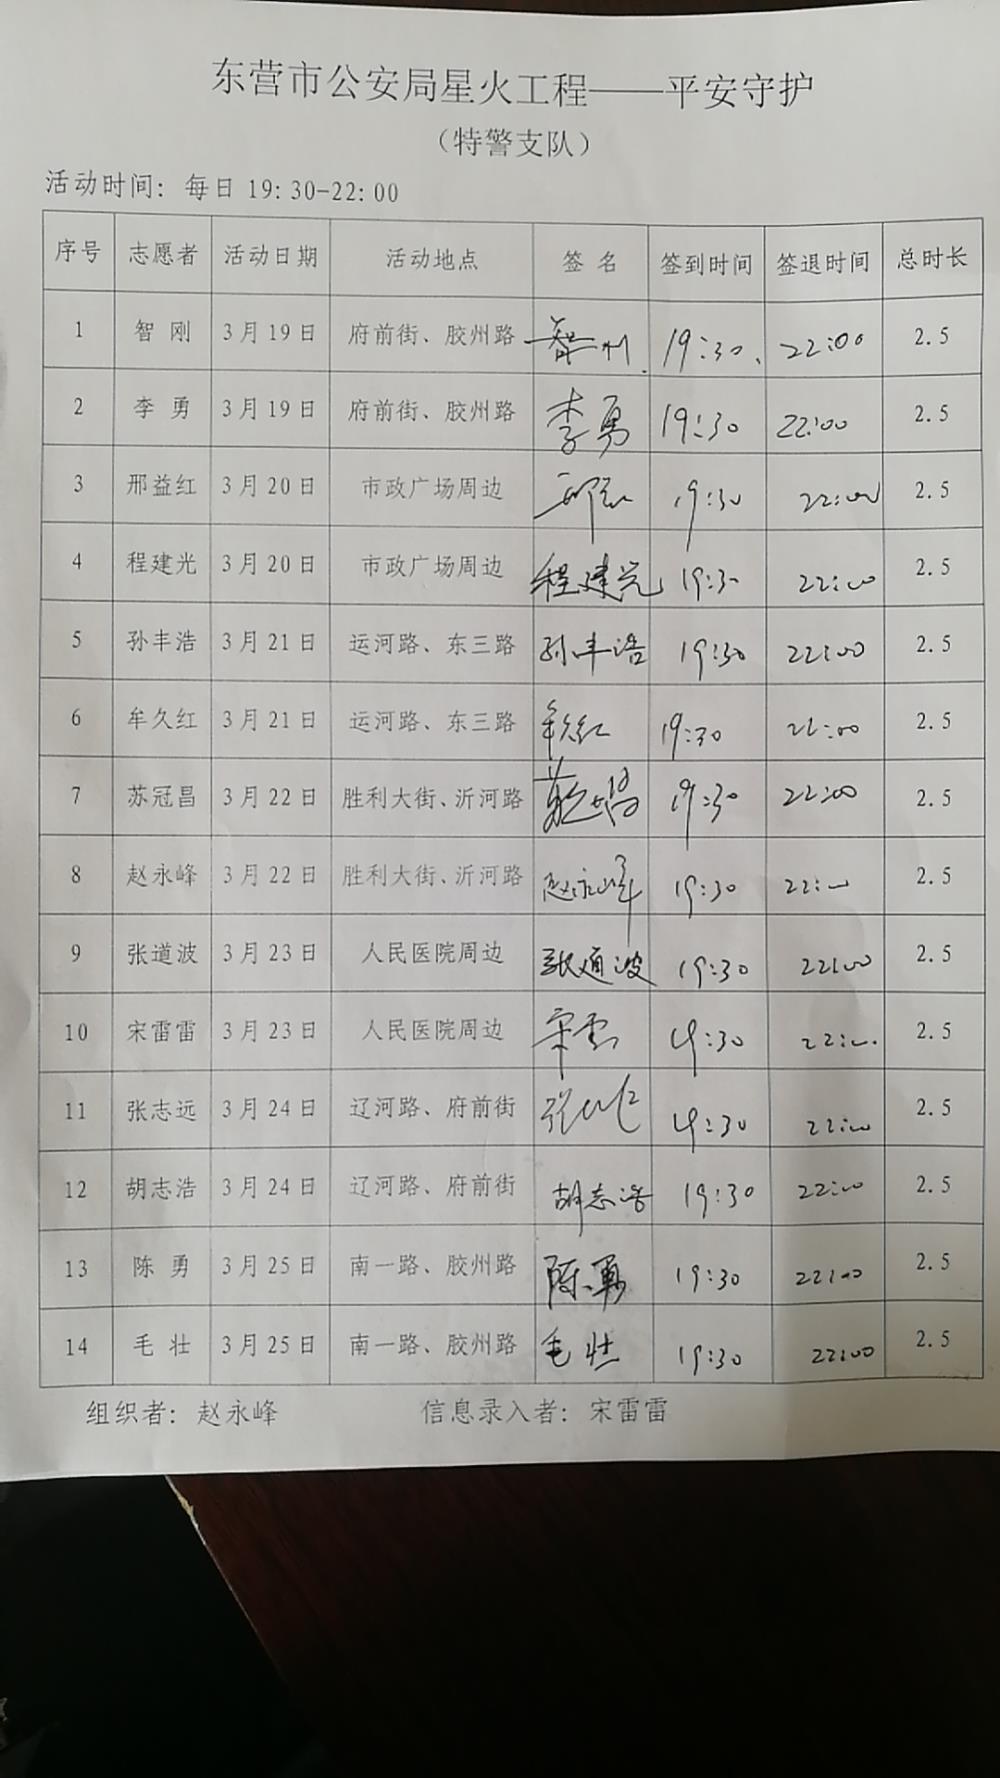 东营市公安局星火工程——平安守护
（特警支队）
活动时间：每日 19：30-22：00
序号 志愿者 活动日期 活动地点 签 名 签到时间 签退时间 总时长
1 智 刚 3月19日 府前街、胶州路 智刚 19:30 22:00 2.5
2 李 勇 3月19日 府前街、胶州路 李勇 19:30 22:00 2.5
3 邢益红 3月20日 市政广场周边 19:30 22:00 2.5
4 程建光 3月20日 市政广场周边 程建光 19:30 22:00 2.5
5 孙丰浩 3月21日 运河路、东三路 孙丰浩 19:30 22:00 2.5
6 牟久红 3月21日 运河路、东三路 牟久红 19:30 22:00 2.5
7 苏冠昌 3月22日 胜利大街、沂河路 苏冠昌 19:30 22:00 2.5
8 赵永峰 3月22日 胜利大街、沂河路 赵永峰 19:30 22:00 2.5
9 张道波 3月23日 人民医院周边 张道波 19:30 22:00 2.5
10 宋雷雷 3月23日 人民医院周边 19:30 22:00 2.5
11 张志远 3月24日 辽河路、府前街 张志远 19:30 22:00 2.5
12 胡志浩 3月24日 辽河路、府前街 胡志浩 19:30 22:00 2.5
13 陈 勇 3月25日 南一路、胶州路 陈勇 19:30 22:00 2.5
14 毛 壮 3月25日 南一路、胶州路 毛壮 19:30 22:00 2.5
组织者：赵永峰 信息录入者：宋雷雷